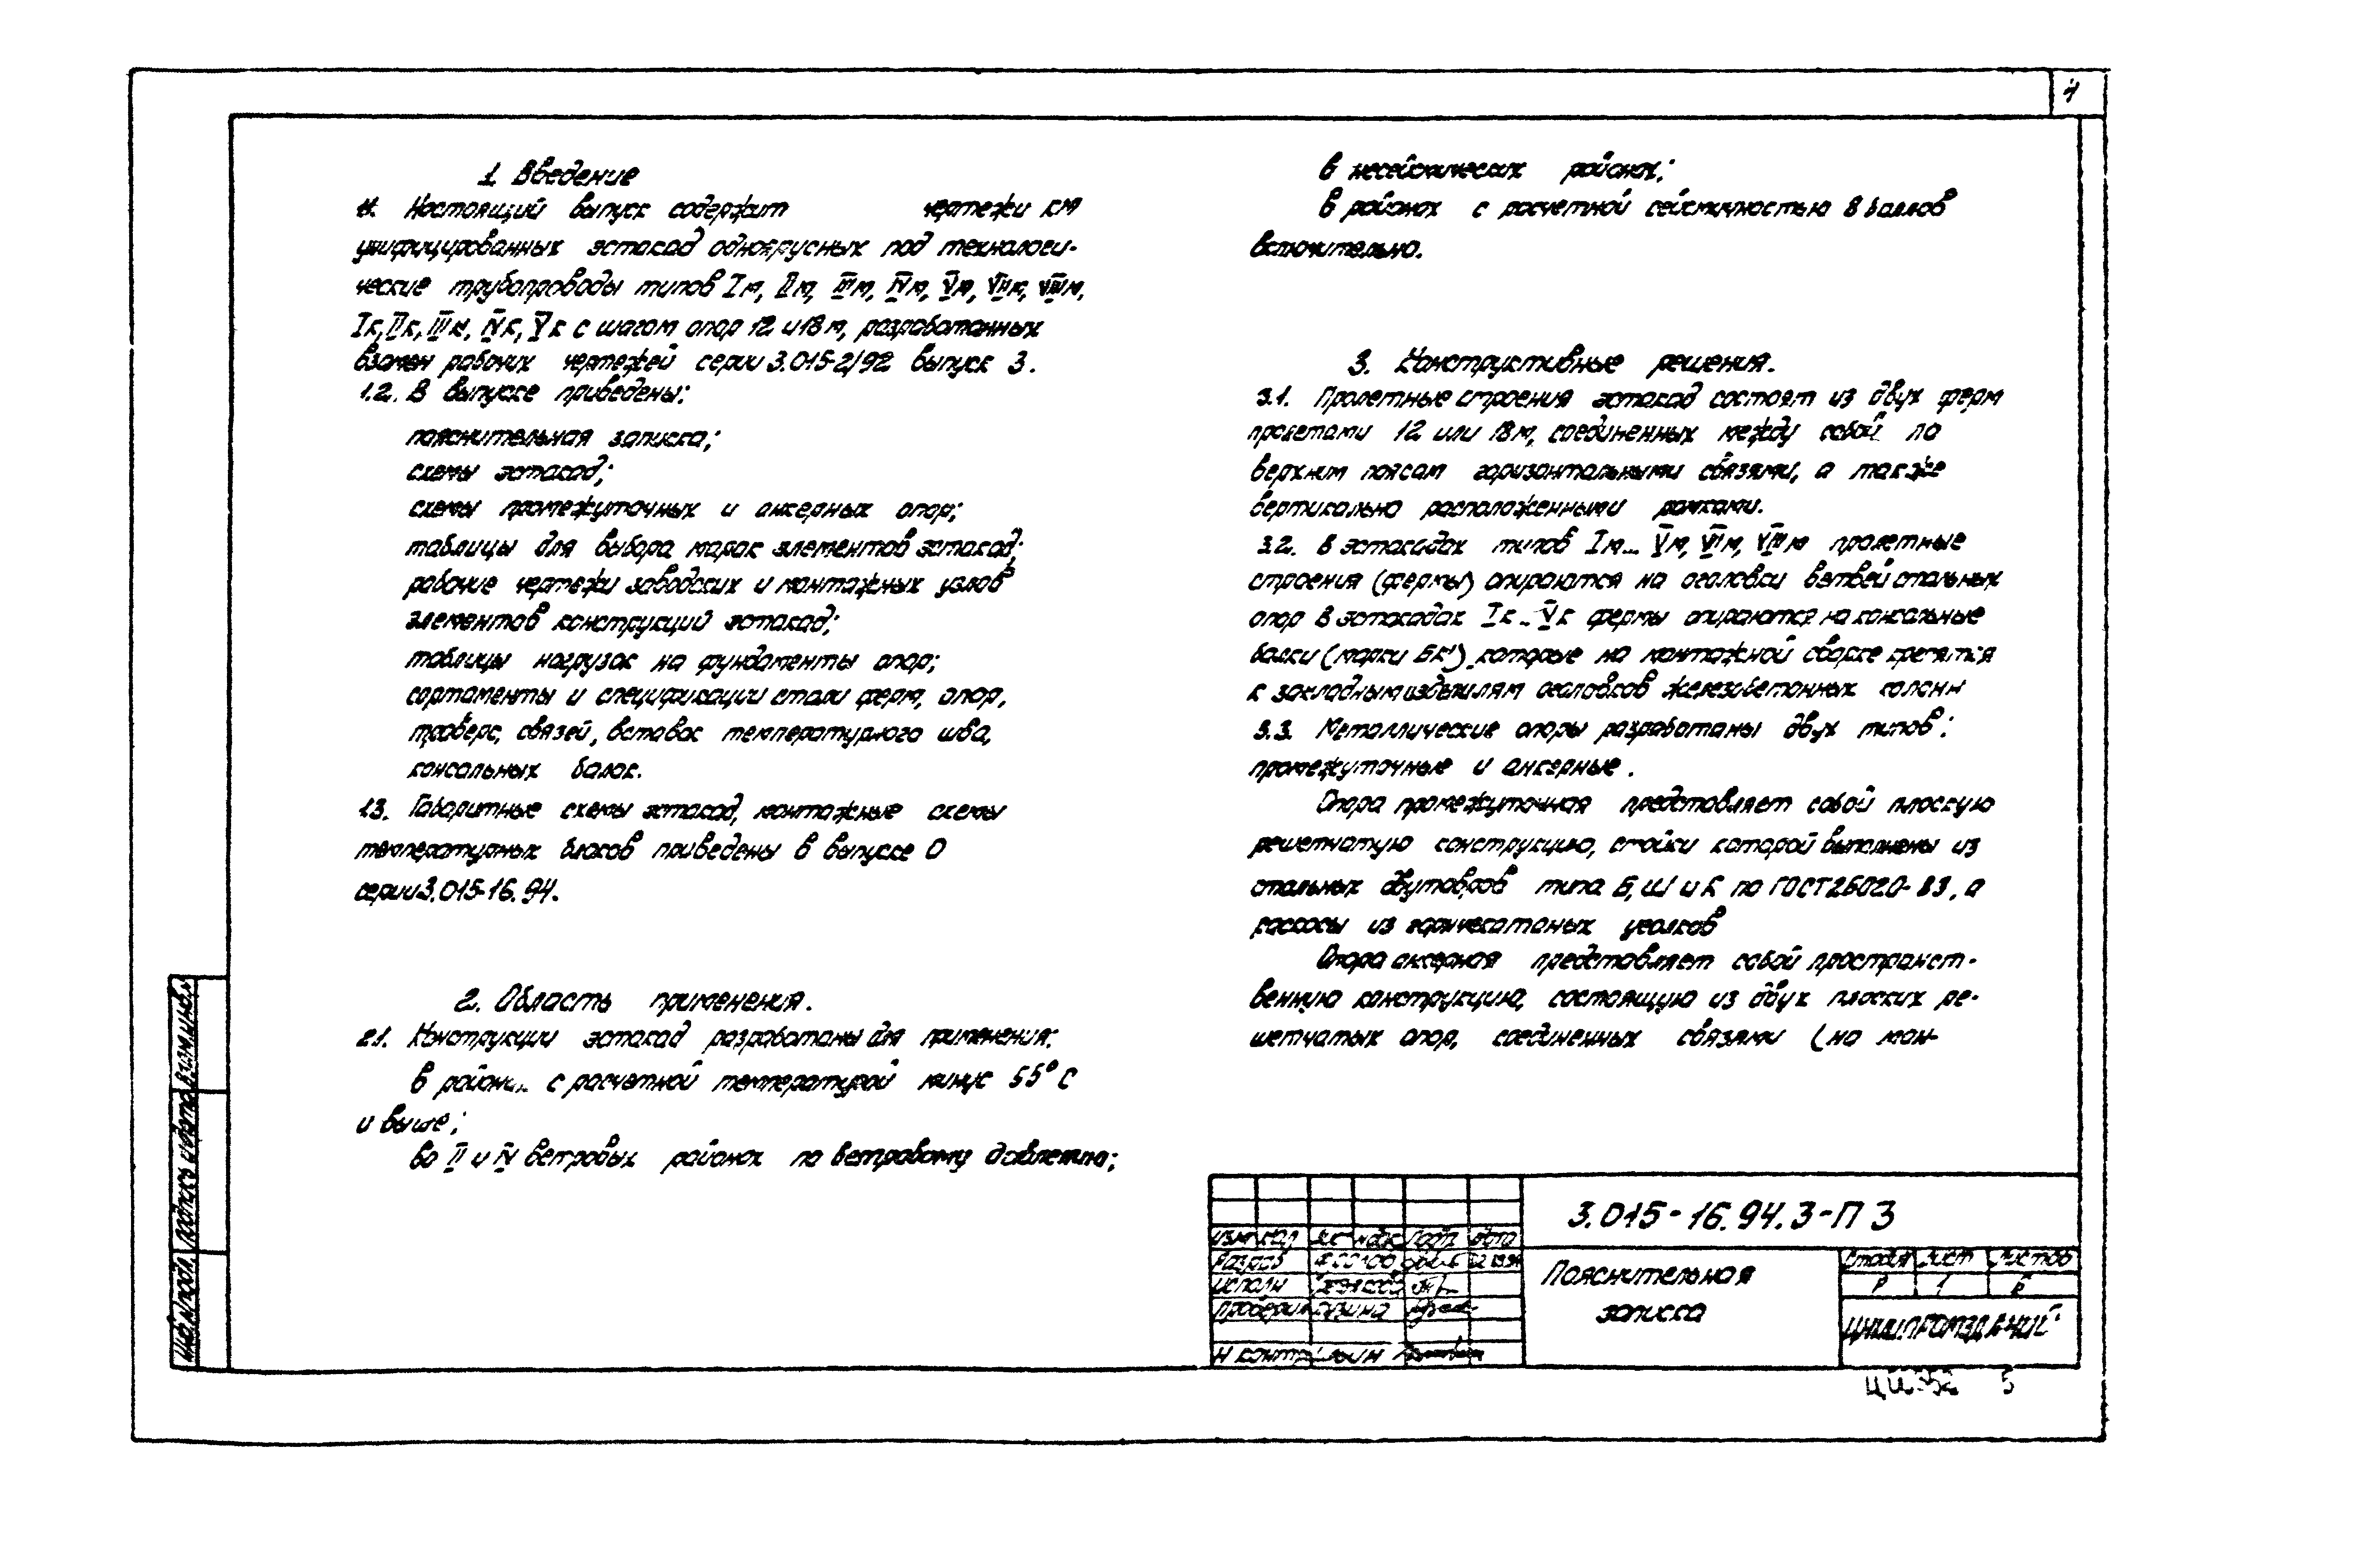 4
1. Введение
1.1. Настоящий выпуск содержит чертежи КМ
унифицированных эстакад одноярусных под технологи-
ческие трубопроводы типов Iм, IIм, IIIм, IVм, Vм, VIIм, VIIIм,
Iк, IIк, IIIк, IVк, Vк с шагом опор 12 и 18 м, разработанных
взамен рабочих чертежей серии 3.015-2/92 выпуск 3.
1.2. В выпуске приведены:
пояснительная записка;
схемы эстакад;
схемы промежуточных и анкерных опор;
таблицы для выбора марок элементов эстакад;
рабочие чертежи заводских и монтажных узлов
элементов конструкций эстакад;
таблицы нагрузок на фундаменты опор;
сортаменты и спецификации стали ферм, опор,
траверс, связей, вставок температурного шва,
консольных балок.
1.3. Габаритные схемы эстакад, монтажные схемы
температурных блоков приведены в выпуске 0
серии 3.015-16.94.
2. Область применения.
2.1. Конструкции эстакад разработаны для применения:
в районах с расчетной температурой минус 55° С
и выше;
во II и IV ветровых районах по ветровому давлению;
в несейсмических районах;
в районах с расчетной сейсмичностью 8 баллов
включительно.
3. Конструктивные решения.
3.1. Пролетные строения эстакад состоят из двух ферм
пролетами 12 или 18 м, соединенных между собой по
верхним поясам горизонтальными связями, а также
вертикально расположенными рамками.
3.2. В эстакадах типов Iм... Vм, VIIм, VIIIм пролетные
строения (фермы) опираются на оголовки ветвей стальных
опор В эстакадах Iк...Vк фермы опираются на консольные
балки (марки БК1), которые на монтажной сварке крепятся
к закладным изделиям оголовков железобетонных колонн
3.3. Металлические опоры разработаны двух типов:
промежуточные и анкерные.
Опора промежуточная представляет собой плоскую
решетчатую конструкцию, стойки которой выполнены из
стальных двутавров типа Б, Ш и К по ГОСТ 26020-83, а
раскосы из горячекатаных уголков
Опора анкерная представляет собой пространст-
венную конструкцию, состоящую из двух плоских ре-
шетчатых опор, соединенных связями (на мон-
3.015-16.94.3-ПЗ
Изм Кол Лист №док Подп Дата
Разраб
Исполн
Проверил
Н контр
Пояснительная
записка
Стадия Лист Листов
Р 1
ЦНИИПРОМЗДАНИЙ
5
Взам инв №
Подпись и дата
Инв № подл